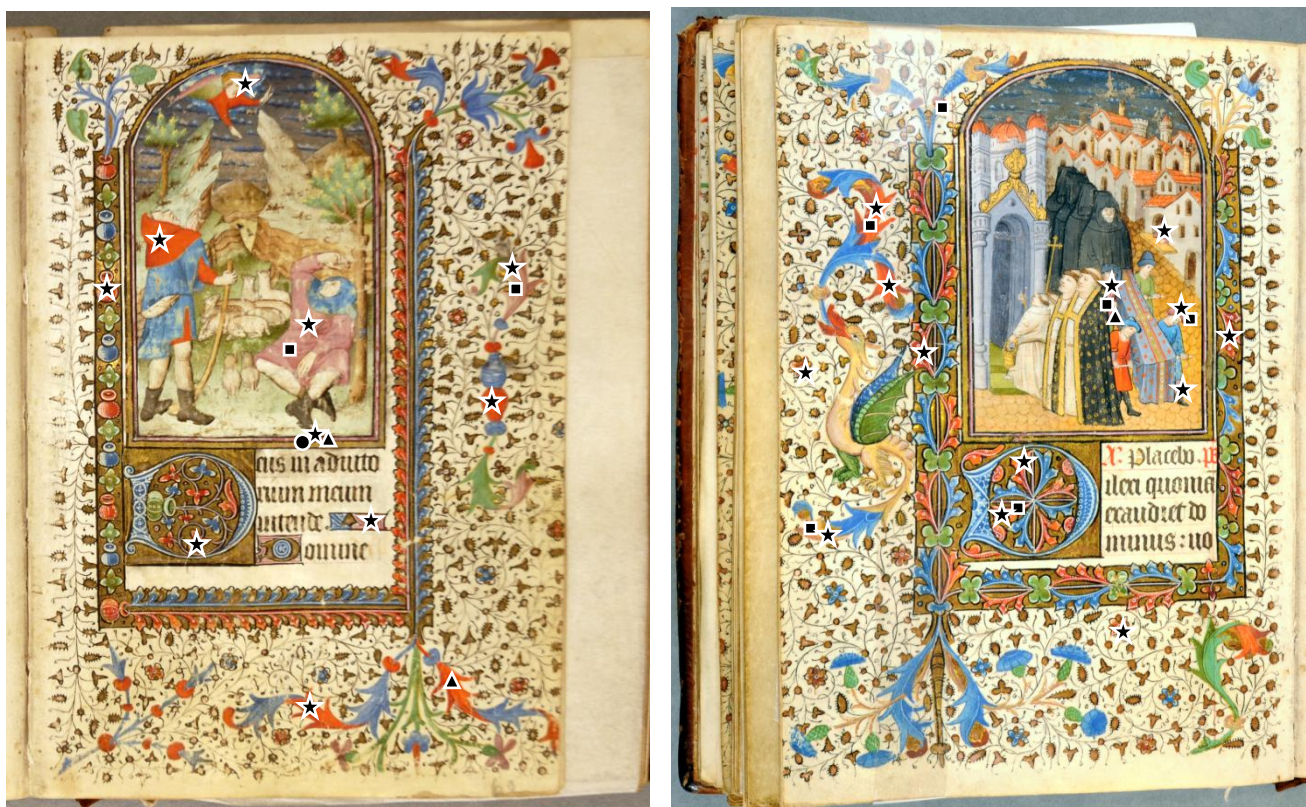 Deus in adiuto
rium meum
intende
Domine
Placebo. 
Dilexi quonia
exaudiet do
minus : uo